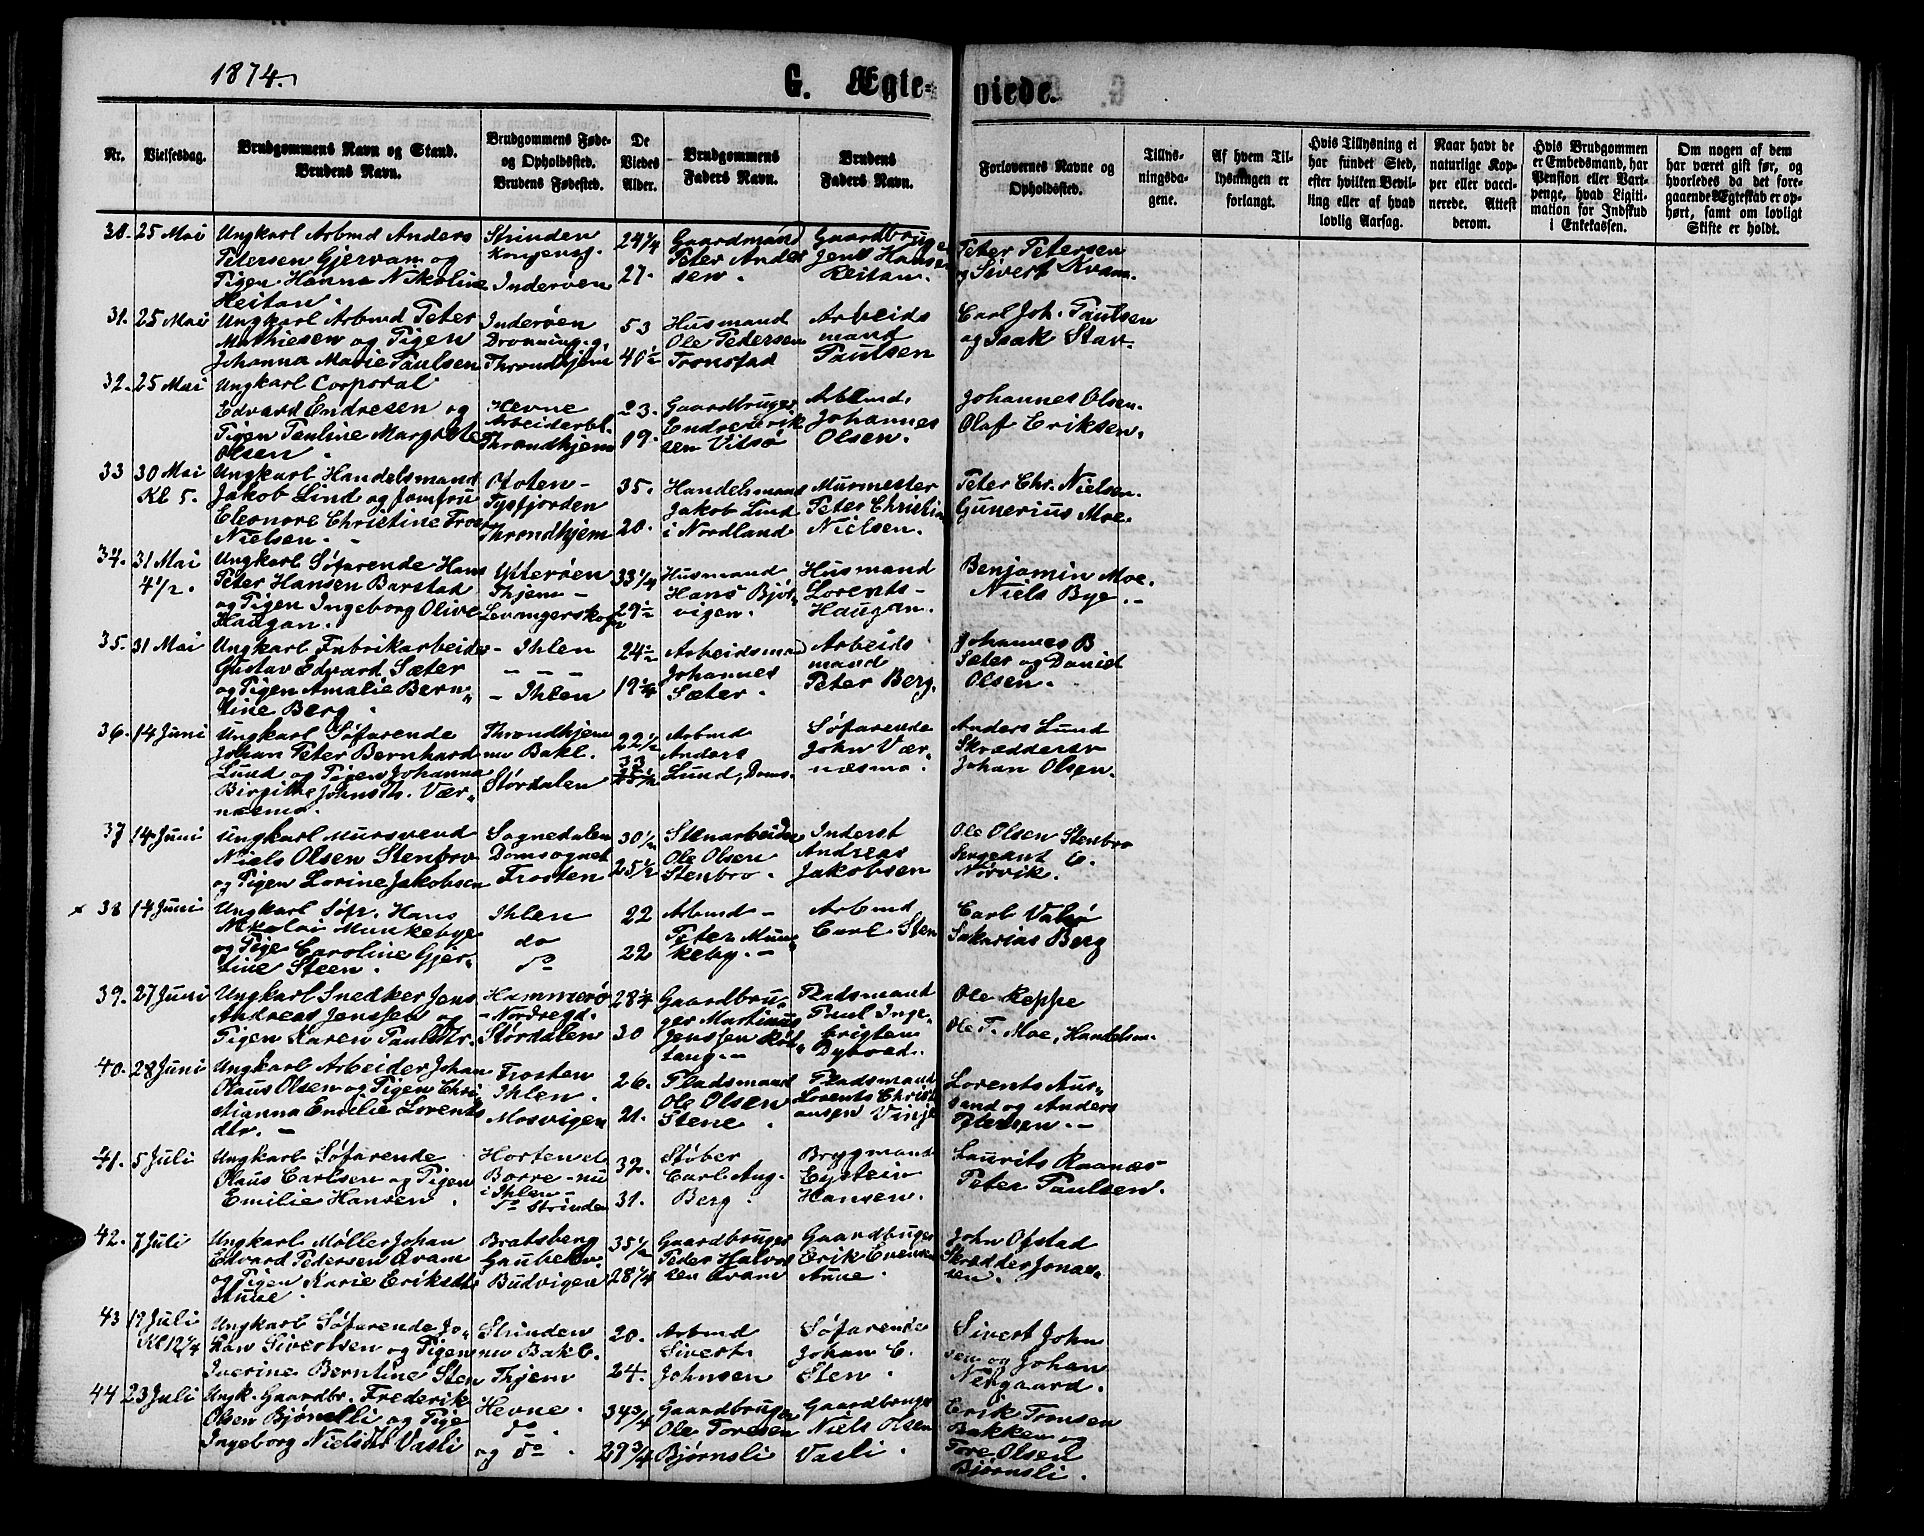 1874.
G. Ægte=
viede.
Nr.
Vielsesdag.
Brudgommens Navn og Stand.
Brudens Navn.
Brudgommens Føde-
og Opholdssted.
Brudens Fødested.
De
Viedes
Alder.
Brudgommens
Faders Navn.
Brudens
Faders Navn.
Forlovernes Navne og
Opholdssted.
Tillys-
ningsda-
gene.
Af hvem Til-
lysningen er
forlangt.
Hvis Tillysning ei
har fundet Sted,
efter hvilken Bevil-
ling eller af hvad
lovlig Aarsag.
Naar havt de
naturlige Kop-
per eller vacci-
nerede. Attest
derom.
Hvis Brudgommen
er Embedsmand, har
Pension eller Vart-
penge, hvad Ligiti-
mation for Indskud
i Enkekassen.
Om nogen af dem
har været gift før, og
hvorledes da det fore-
gaaende Ægteskab er op-
hørt, samt om lovligt
Skifte er holdt.
30. 25 Mai
Ungkarl Arbmd Anders
Petersen Gjervam og
Pigen Hanna Nikoline
Reitan.
Strinden
Kongensg.
Inderøen
24 1/4
27.
Gaardmand
Peter Ander
sen.
Gaardbruger
Jens Hansen
Reitan.
Peter Petersen
og Sivert Kvam.
31. 25 Mai
Ungkarl Arbmd Peter
Mathiesen og Pigen
Johanna Marie Paulsen
Inderøen
Dronning.g.
Throndhjem
53
40 1/2
Husmand
Ole Pedersen
Tronstad
Arbeids
mand
Paulsen
Carl Joh. Paulsen
og Isak Stav.
32. 25 Mai
Ungkarl Corporal
Edvard Endresen og
Pigen Pauline Margrete
Olsen.
Hevne
Arbeiderbl.
Throndhjem
23.
19.
Gaardbruger
Endre Erik
sen Vitsø
Arbmd.
Johannes
Olsen.
Johannes Olsen.
Olaf Eriksen.
33 30 Mai
Kl 5.
Ungkarl Handelsmand
Jakob Lind og Jomfru
Eleonore Christine
Nielsen.
Ofoten-
Tysfjorden
Throndhjem
35.
20.
Handelsmand
Jakob Lind
i Nordland
Murmester
Peter Christian
Nielsen.
Peter Chr. Nielsen.
Gunerius Moe.
34. 31 Mai
4 1/2.
Ungkarl Søfarende Hans
Peter Hansen Barstad
og Pigen Ingeborg Olive
Haugan.
Ytterøen
Thjem-
Levangerskogn
33 1/4
29 1/2
Husmand
Hans Bjør-
vigen.
Husmand
Lorents-
Haugan.
Benjamin Moe.
Niels Bye.
35. 31 Mai
Ungkarl Fabrikarbeider
Gustav Edvard Sæter
og Pigen Amalie Bern-
tine Berg.
- Ihlen
- - -
- Ihlen
24 1/2
19 1/4
Arbeidsmand
Johannes
Sæter.
Arbeids
mand
Peter Berg.
Johannes B
Sæter og Daniel
Olsen.
36. 14 Juni
Ungkarl Søfarende
Johan Peter Bernhard
Lund og Pigen Johanna
Birgitte Johnsdt. Vær-
næsmo.
Throndhjem
nu Bakl.
Størdalen
22 1/2
33
Arbmd
Anders
Lund, Doms.
Søfarende
John Vær-
næsmo.
Anders Lund
Skræddersv
Johan Olsen.
37 14 Juni
Ungkarl Mursvend
Niels Olsen Stenbro
og Pigen Lorine Jakobsen
Sognedalen
Domsognet
Frosten
30 1/2
25 1/2
Stenarbeider
Ole Olsen
Stenbro.
Inderst
Andreas
Jakobsen
Ole Olsen Stenbro
Sergeant C.
Nørvik.
x 38 14 Juni
Ungkarl Søfr. Hans
Nikolai Munkebye
og Pige Caroline Gjer-
tine Steen.
Ihlen
do
do
22
22
Arbmd-
Peter Mun-
keby.-
Arbmd
Carl Sten
Carl Valsø
Sakarias Berg
39. 27 Juni
Ungkarl Snedker Jens
Andreas Jenssen og
Pigen Karen Paulsdtr.
Hammerø
-Nordregd.
Størdalen
28 1/4
30
Gaardbru-
ger Martinus
Jenssen Røt-
tang.-
Pladsmand
Paul Inge-
brigtsen
Dybvad.
Ole Reppe
Ole T. Moe, Handelsm.
40. 28 Juni
Ungkarl Arbeider Johan
Olaus Olsen og Pigen Chri-
stianna Emilie Lorents
dtr. -
Frosten
Ihlen.
Mosvigen
26.
21.
Pladsmand
Ole Olsen
Stene.
Pladsmand
Lorents Christi
ansen Vinje
Lorents Aus-
sand og Anders
Petersen.-
41. 5 Juli
Ungkarl Søfarende
Olaus Carlsen og Pigen
Emilie Hansen.
Horten el
Borre-nu
i Ihlen-
do Strinden
32.
31.
Støber
Carl Aug.
Berg.
Brygmand
Eystein
Hansen.
Laurits Raanæs
Peter Paulsen.
42. 7 Juli
Ungkarl Møller Johan
Edvard Pedersen Qvam
og Pigen Marie Eriksdtr
Aune.
Bratsberg
Gaubekv.
Budvigen
35 1/2
28 1/4
Gaardbruger
Peder Halvor
sen Qvam
Gaardbruger
Erik Evensen
Aune.
John Ofstad
Skrædder Jonas-
sen.
43 19 Juli
Kl 12 1/4
Ungkarl Søfarende Jo-
han Sivertsen og Pigen
Iverine Berntine Sten
Strinden
nu Bakl.
Thjem
20.
24.
Arbmd
Sivert
Johnsen
Søfarende
Johan C.
Sten.
Sivert John
sen og Johan
Nergaard.
44 23 Juli
Ungk. Gaardbr. Frederik
Olsen Bjørnsli og Pige
Ingeborg Nielsdt Vasli
Hevne.
do
og do.
34 3/4
29 3/4
Gaardbruger
Ole Toresen
Bjørnsli
Gaardbruger
Niels Olsen
Vasli.
Erik Tronsen
Bakken og
Tore Olsen
Bjørnsli.